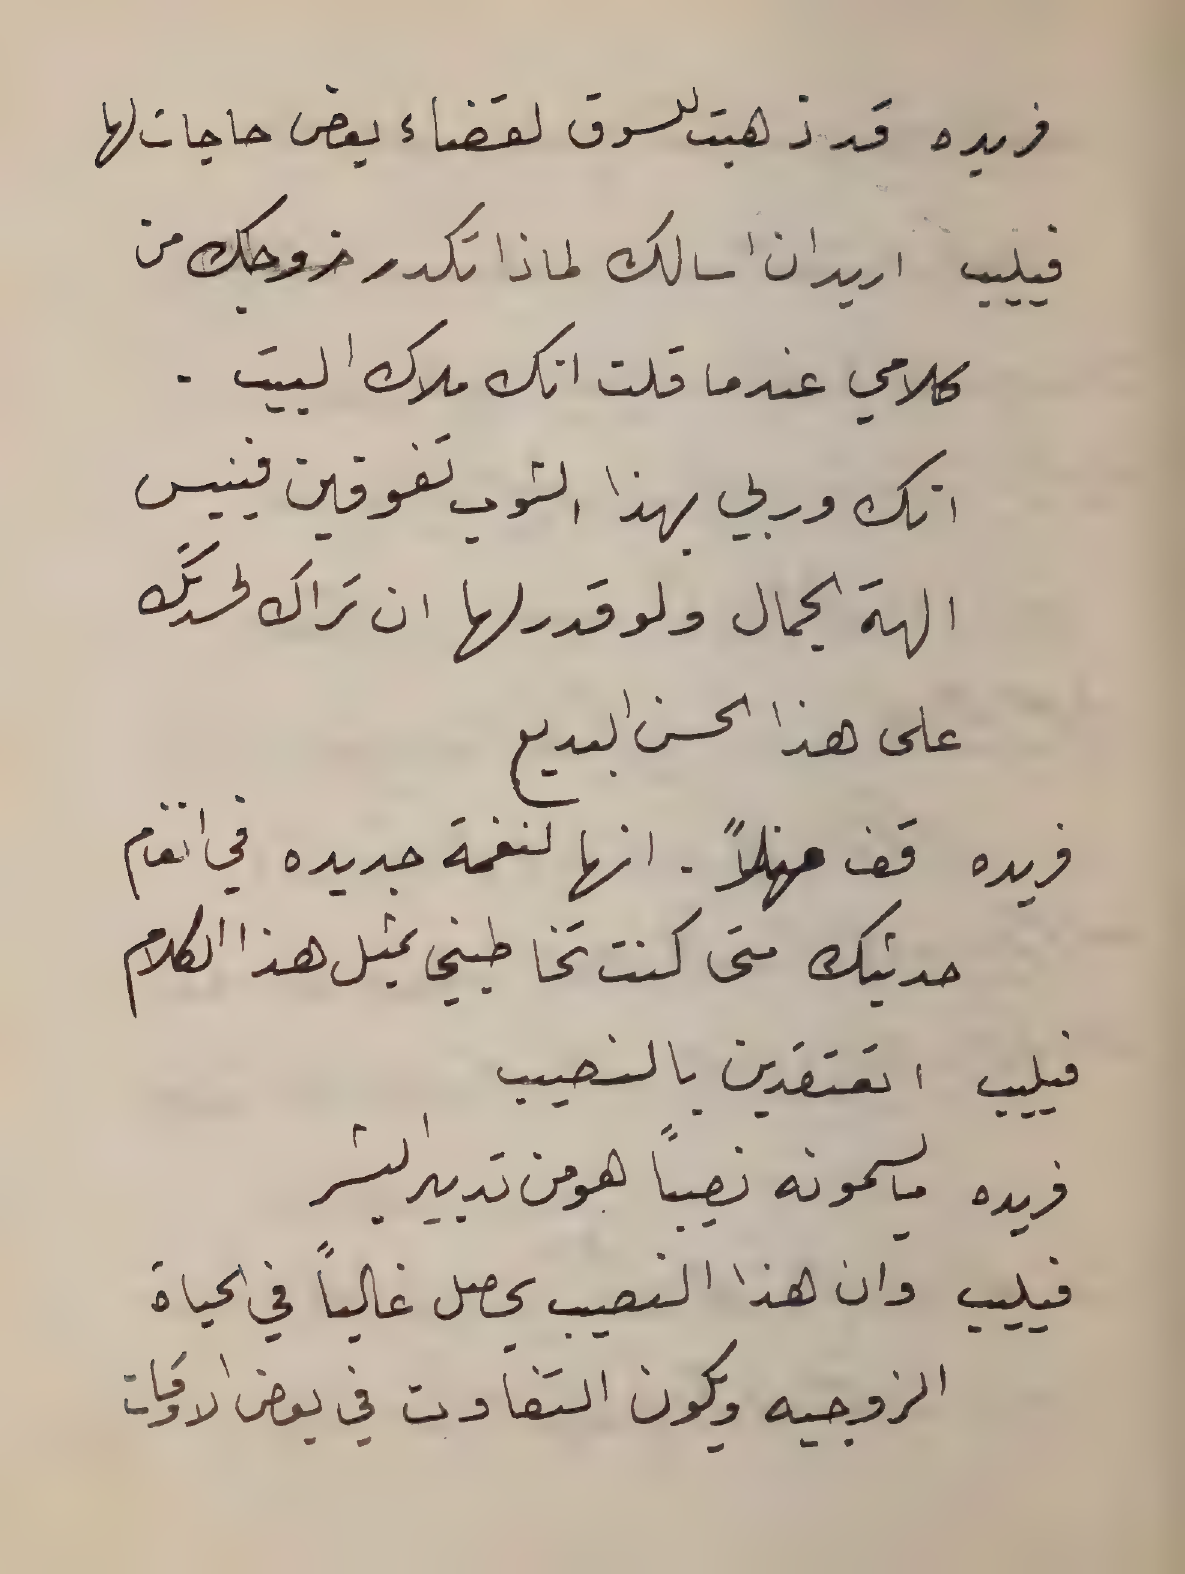 فريده قد ذهبت للسوق لقضاء بعض حاجات لها
فيليب اريد ان اسالك لماذا تكدر زوجك من
كلامي عندما قلت انك ملاك البيت .
انك وربي بهذا الثوب تفوقين فينيس
الهة الجمال ولو قدر لها ان تراك لحسدتك
على هذا الحسن البديع
فريده قف مهلاً . انها لنغمة جديده في انغام
حديثك متى كنت تخاطبني بمثل هذا الكلام
فيليب اتعتقدين بالنصيب
فريده ما يسمونه نصيباً هو من تدبير البشر
فيليب وان هذا النصيب يحصل غالباً في الحياة
الزوجيه ويكون التفاوت في بعض الاوقات